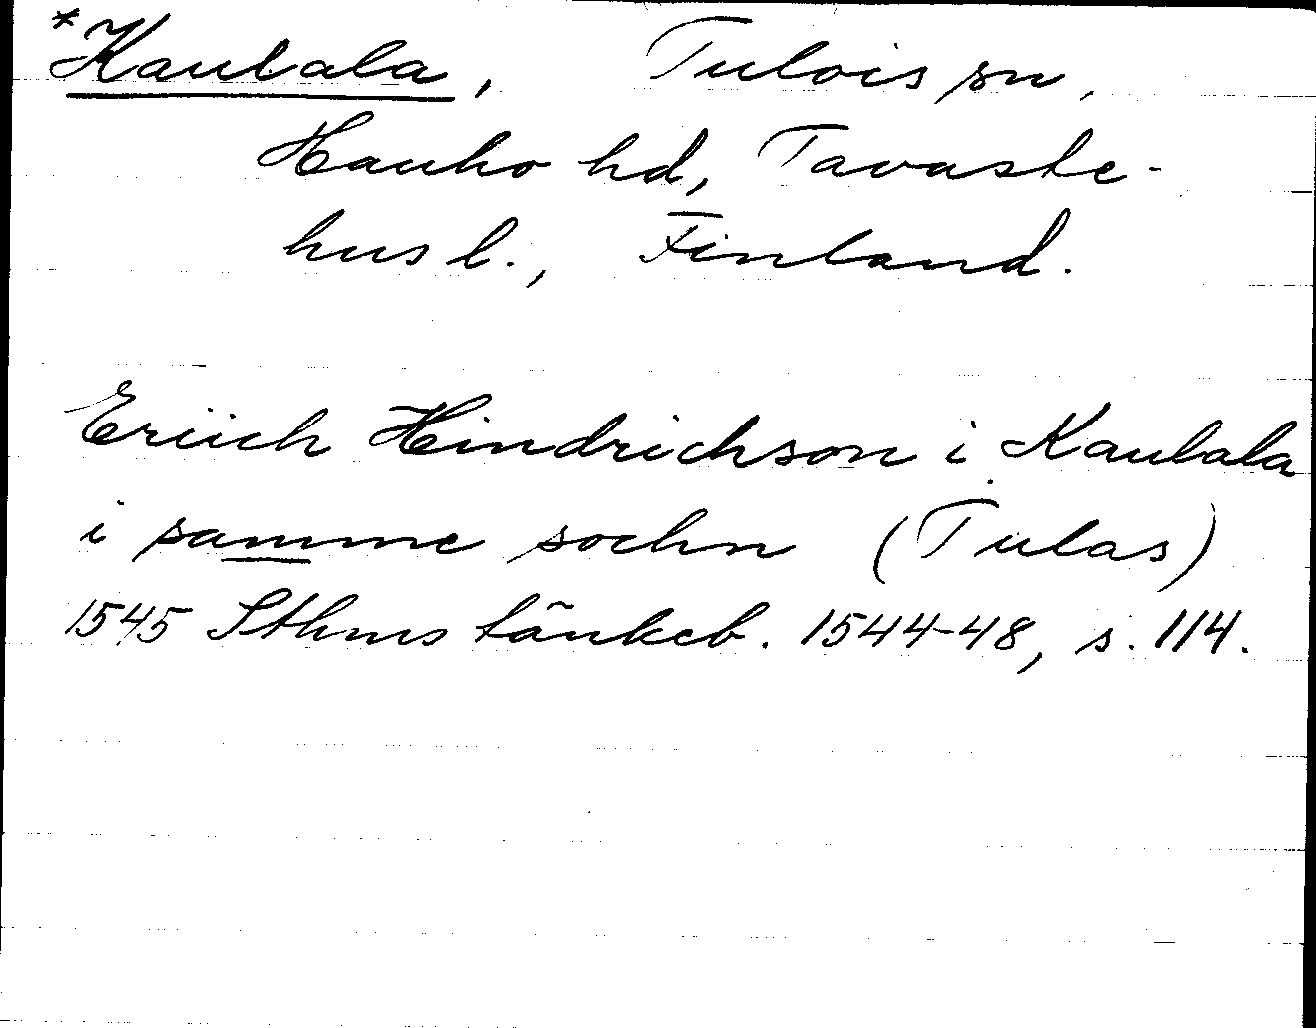 *Kaulala, Tulois sn,
Hauho hd, Tavaste-
hus l., Finland.
Eriich Hindrichson i Kaulala
i samme sochn (Tulas)
1545 Sthms tänkeb. 1544-48, s. 114.